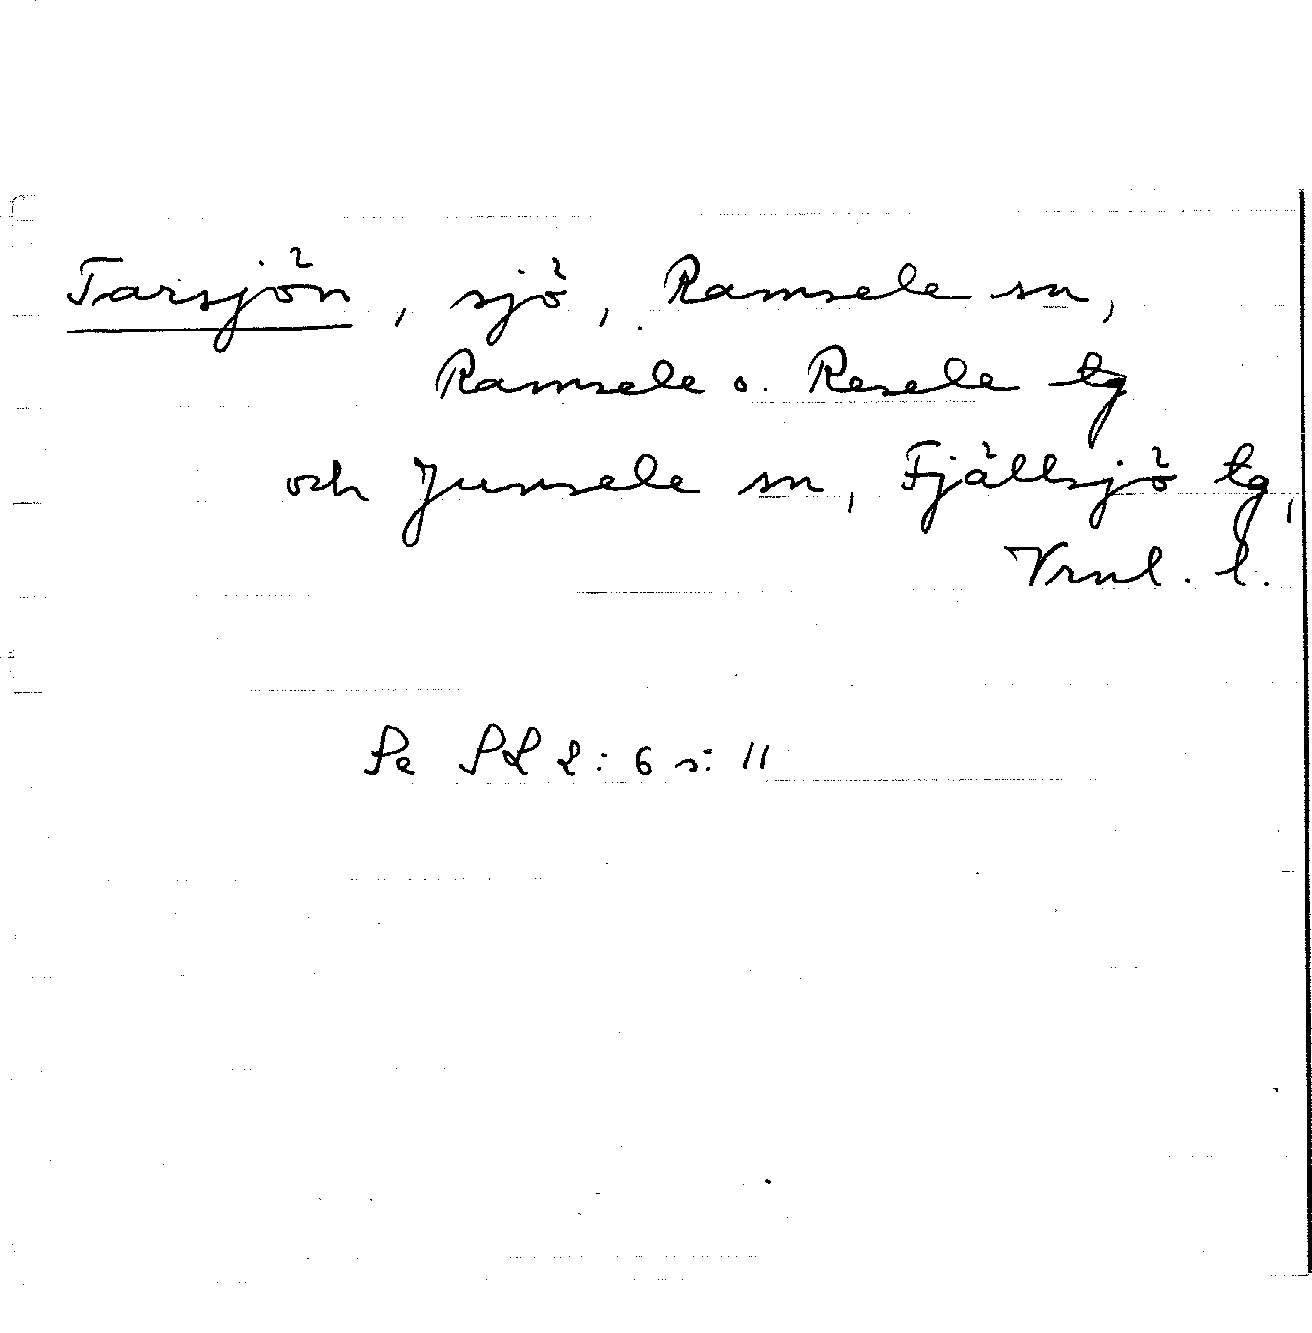 Tarsjön, sjö, Ramsele sn,
Ramsele o. Resele tg
och Junsele sn, Fjällsjö tg,
Vrnl. l.
Se SL 2:6 s: 11